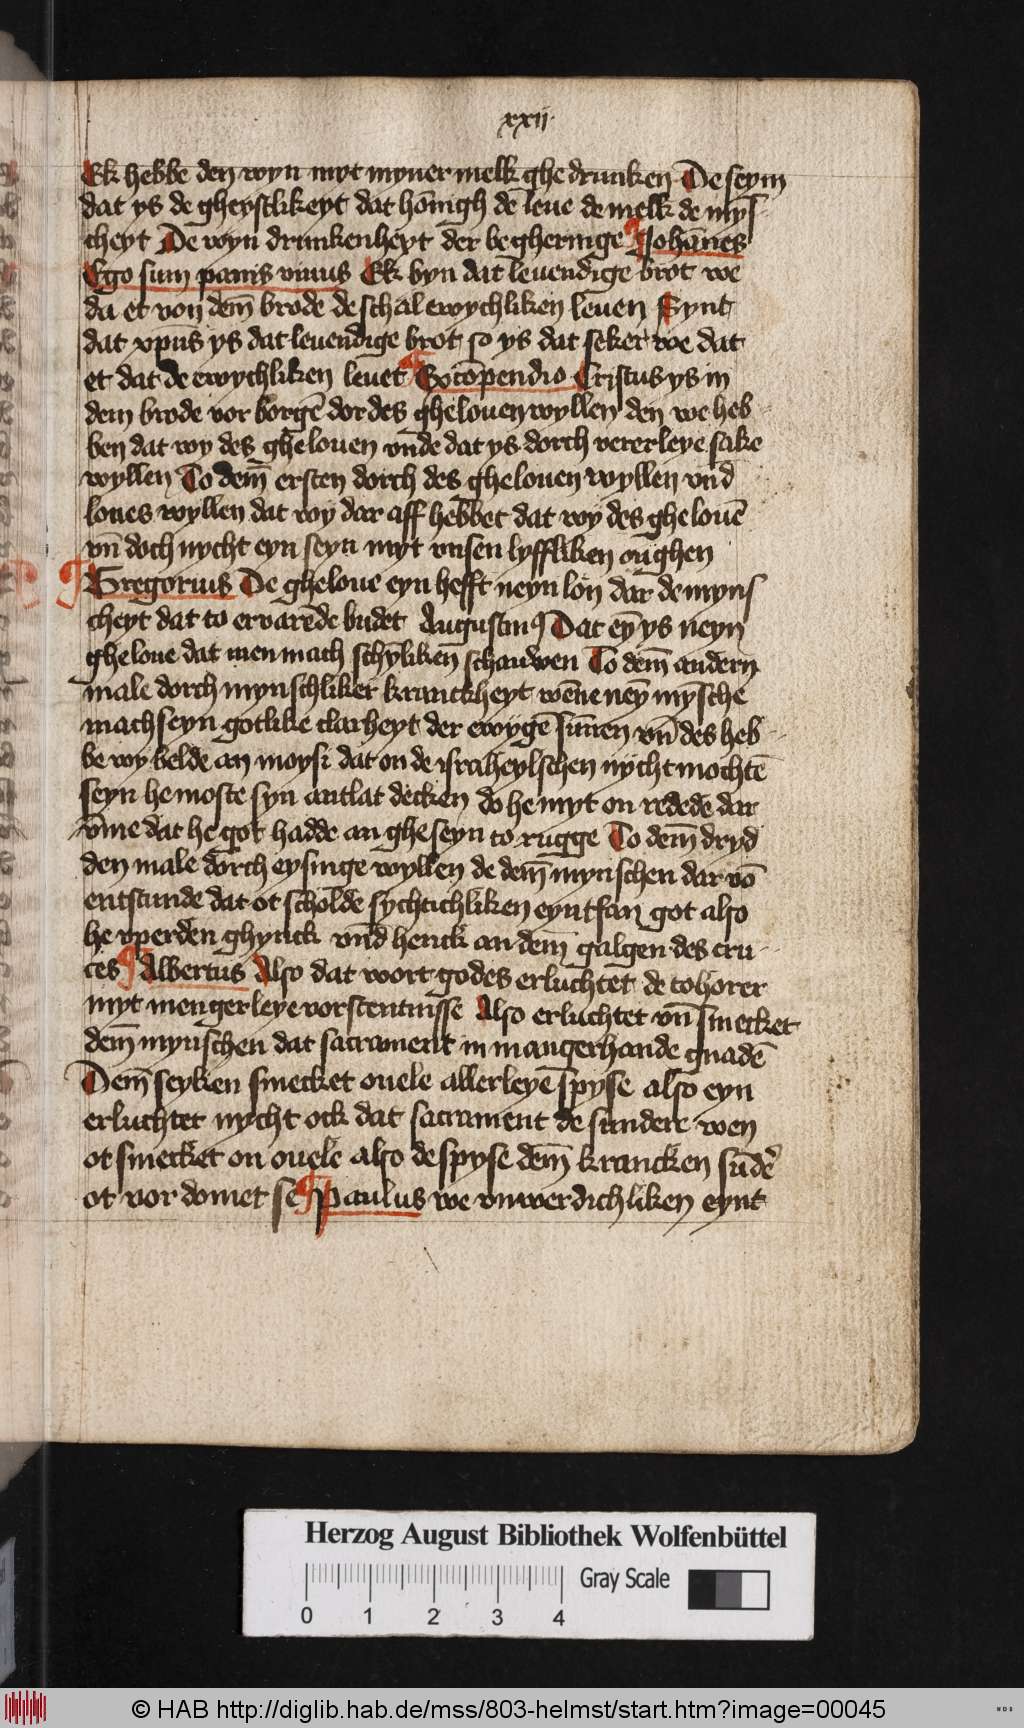 xxij
Ek hebbe den wyn myt myner melk ghe drunken De seym
dat ys de gheystlikeyt dat honnigh de leue de melk de mẏs-
cheyt De wyn drunkenheyt der begheringe ¶ Johānes
Ego sum panis viuus Ek byn dat leuendige brot we
da et von dem̄ brode de schal ewychliken leuen Synt
dat xp̄us ys dat leuendige brot so ys dat seker we dat
et dat de ewychliken leuet ¶ Ex cōpendio Cristus ys in
dem brode vor borgē dor des ghelouen wyllen den we heb
ben dat wy des ghelouen vnde dat ys dorch vererleye sake
wyllen To dem̄ ersten dorch des ghelouen wyllen vnd̄
loues wyllen dat wy dar aff hebbet dat wy des ghelouē
vn̄ doch nycht eyn seyn myt vnsen lyffliken oughen
¶ Gregorius De gheloue eyn hefft neyn lon dar de myns
cheyt dat to ervarēde budet Augustin9 Dat eȳ ys neyn
gheloue dat men mach schyliken schauwen To dem̄ andern
male dorch mynschliker kranckheyt wēne neȳ mȳsche
mach seyn gotlike clarheyt der ewygē sūnen vn̄ des heb-
be wy belde an moysi dat on de israheylschen nycht mochtē
seyn he moste syn antlat decken do he myt on redede dar
v̄me dat he got hadde an gheseyn to rugge To dem̄ dryd
den male dorch eysinge wyllen de dem̄ mynschen dar vō
entstunde dat ot scholde sychtichliken eyntfan got also
he vperden ghynck vnd henck an dem̄ galgen des cru-
ces ¶ Albertus Also dat wort godes erluchtet de tohorer
myt mengerleye vorstentnisse Also erluchtet vn̄ smecket
dem̄ mynschen dat sacrament in mangerhande gnadē
Dem̄ seyken smecket ouele allerleyē spyse also eyn
erluchtet nycht ock dat sacrament de sundere wen
ot smecket on ouele also de spyse dem̄ krancken sūdē
ot vor domet se ¶ Paulus we vnwerdichliken eynt
Herzog August Bibliothek Wolfenbüttel
Gray Scale
0 1 2 3 4
© HAB http://diglib.hab.de/mss/803-helmst/start.htm?image=00045